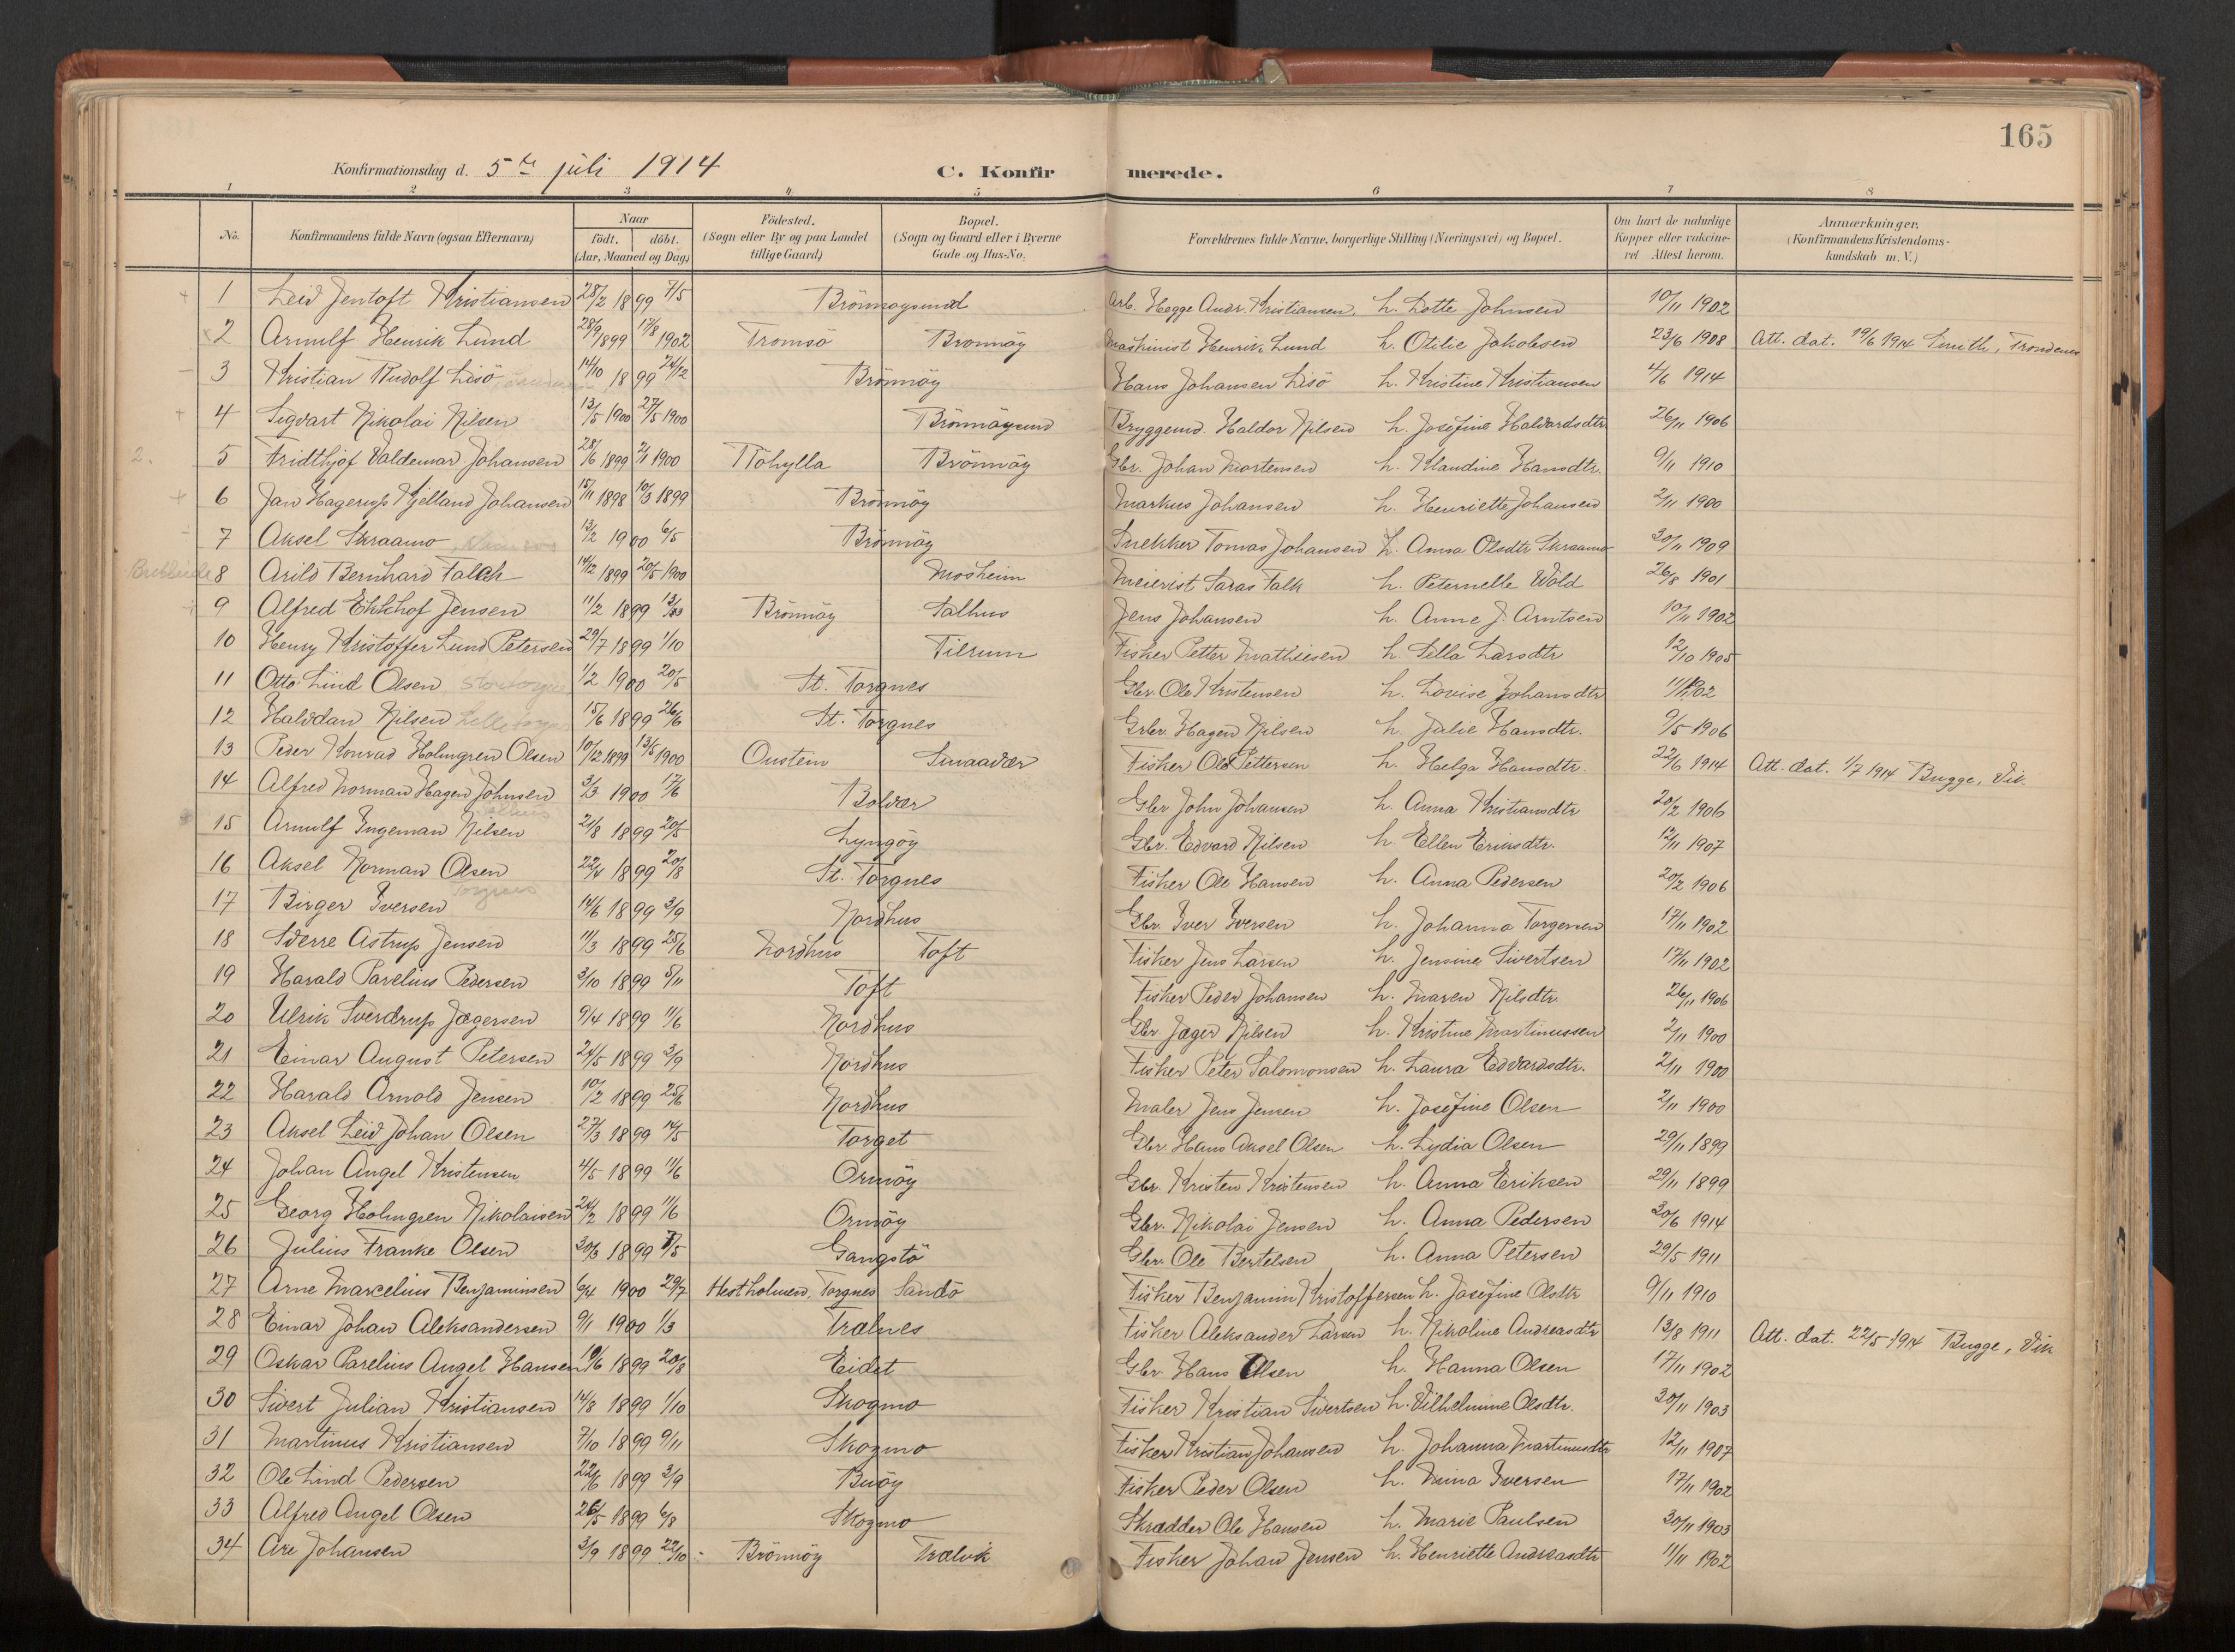 165
Konfirmationsdag d. 5te juli 1914 C. Konfirmerede.
1 2 3 4 5 6 7 8
No. Konfirmandens fulde Navn (ogsaa Efternavn) Naar födt. döbt. (Aar, Maaned og Dag) Födested. (Sogn eller By og paa Landet tillige Gaard) Bopæl. (Sogn og Gaard eller i Byerne Gade og Hus-No. Forældrenes fulde Navne, borgerlige Stilling (Næringsvei) og Bopæl. Om havt de naturlige Kopper eller vaccineret Attest herom. Anmærkninger. (Konfirmandens Kristendomskundskab m. V.)
+ 1 Leiv Jentoft Kristiansen 28/2 1899 7/5 Brönnöysund Arb. Hegge Andr. Kristiansen, h. Lotte Johnsen 10/11 1902
x 2 Arnulf Henrik Lund 28/9 1899 17/8 1902 Tromsö Brönnöy Maskinist Henrik Lund h. Otilie Jakobsen 23/6 1908 Att. dat. 19/6 1914 Smith, Trondenes
- 3 Kristian Rudolf Lisö 14/10 1899 24/12 Brönnöy Hans Johansen Lisö h. Kristine Kristiansen 4/6 1914
+ 4 Sigvart Nikolai Nilsen 13/5 1900 27/5 1900 Brönnöysund Bryggemd. Haldor Nilsen h. Josefine Halvardsdtr 26/11 1906
2. 5 Fridthjof Valdemar Johansen 28/6 1899 2/11 1900 Töhylla Brönnöy Gbr. Johan Mortensen h. Klaudine Hansdtr. 9/11 1910
+ 6 Jan Hagerup Kjelland Johansen 15/11 1898 10/3 1899 Brönnöy Markus Johansen h. Henriette Johansen 2/11 1900
- 7 Aksel Skraamo 13/2 1900 6/5 Brönnöy Snekker Tomas Johansen h. Anna Olsdtr Skraamo 30/11 1909
8 Arild Bernhard Falch 14/12 1899 20/5 1900 Mosheim Meierist Saras Falk h. Peternelle Wold 26/8 1901
+ 9 Alfred Ekhhof Jensen 11/2 1899 13/ Brönnöy Salhus Jens Johansen h. Anne J. Arntsen 10/11 1902
10 Henry Kristoffer Lund Petersen 29/7 1899 1/10 Tilrum Fisker Petter Mathiesen h. Sella Larsdtr 12/10 1905
11 Otto Lind Olsen Stortorgnes 1/2 1900 20/5 St. Torgnes Gbr. Ole Kristensen h. Lovise Johansdtr 11/11 1902
12 Halvdan Nilsen 15/6 1899 26/6 St. Torgnes Grbr. Hagen Nilsen h. Julie Hansdtr. 9/5 1906
13 Peder Konrad Holmgren Olsen 10/12 1899 13/5 1900 Onstein Sinaavær Fisker Ole Pettersen h. Helga Hansdtr. 22/6 1914 Att. dat. 1/7 1914 Bugge, Vik.
14 Alfred Norman Hagen Johnsen 3/3 1900 17/6 Bolvær Gbr. John Johansen h. Anna Kristiansdtr 20/2 1906
15 Arnulf Ingeman Nilsen 21/8 1899 20/5 Lyngöy Gbr. Edvard Nilsen h. Ellen Eriksdtr. 12/11 1907
16 Aksel Norman Olsen 22/4 1899 20/8 St. Torgnes Fisker Ole Hansen h. Anna Pedersen 20/2 1906
17 Birger Iversen Torgnes 14/6 1899 3/9 Nordhus Gbr. Iver Iversen h. Johanna Torgersen 17/11 1902
18 Sverre Astrup Jensen 11/3 1899 25/6 Nordhus Toft Fisker Jens Larsen h. Jensine Sivertsen 17/11 1902
19 Harald Parelius Pedersen 3/10 1899 5/11 Toft Fisker Peder Johansen h. Maren Nilsdtr. 26/11 1906
20 Ulrik Sverdrup Jægersen 9/4 1899 11/6 Nordhus Gbr Jæger Nilsen h. Kristine Martinussen 2/11 1900
21 Einar August Petersen 24/5 1899 3/9 Nordhus Fisker Peter Salomonsen h. Laura Edvardsdtr. 2/11 1900
22 Harald Arnold Jensen 10/2 1899 25/6 Nordhus Maler Jens Jensen h. Josefine Olsen 2/11 1900
23 Aksel Leiv Johan Olsen 27/3 1899 14/5 Torget Gbr Hans Aksel Olsen h. Lydia Olsen 29/11 1899
24 Johan Angel Kristensen 4/5 1899 11/6 Ormöy Gbr. Kristen Kristensen h. Anna Eriksen 29/11 1899
25 Georg Holmgren Nikolaisen 24/2 1899 11/6 Ormöy Gbr. Nikolai Jensen h. Anna Pedersen 30/6 1914
26 Julius Franke Olsen 30/3 1899 7/5 Gangstö Gbr. Ole Bertelsen h. Anna Petersen 29/5 1911
27 Arne Marcelius Benjaminsen 6/4 1900 29/7 Hestholmen, Torgnes Sandö Fisker Benjamin Kristoffersen h. Josefine Olsdtr 9/11 1910
28 Einar Johan Aleksandersen 9/1 1900 1/3 Trælnes Fisker Aleksander Larsen h. Nikoline Andreasdtr 13/8 1911 Att. dat. 22/5 1914 Bugge, Vik
29 Oskar Parelius Angel Hansen 10/6 1899 20/8 Eidet Gbr. Hans Olsen h. Hanna Olsen 17/11 1902
30 Sivert Julian Kristiansen 14/8 1899 1/10 Skogmo Fisker Kristian Sivertsen h. Vilhelmine Olsdtr. 30/11 1903
31 Martinus Kristiansen 7/10 1899 9/11 Skogmo Fisker Kristian Johansen h. Johanna Martinusdtr 12/11 1907
32 Ole Lind Pedersen 22/6 1899 3/9 Buöy Fisker Peder Olsen h. Nina Iversen 17/11 1902
33 Alfred Angel Olsen 26/5 1899 6/8 Skogmo Skrædder Ole Hansen h. Marie Paulsen 30/11 1903
34 Are Johansen 3/9 1899 22/10 Brönnöy Trælvik Fisker Johan Jensen h. Henriette Andreasdtr 11/11 1902